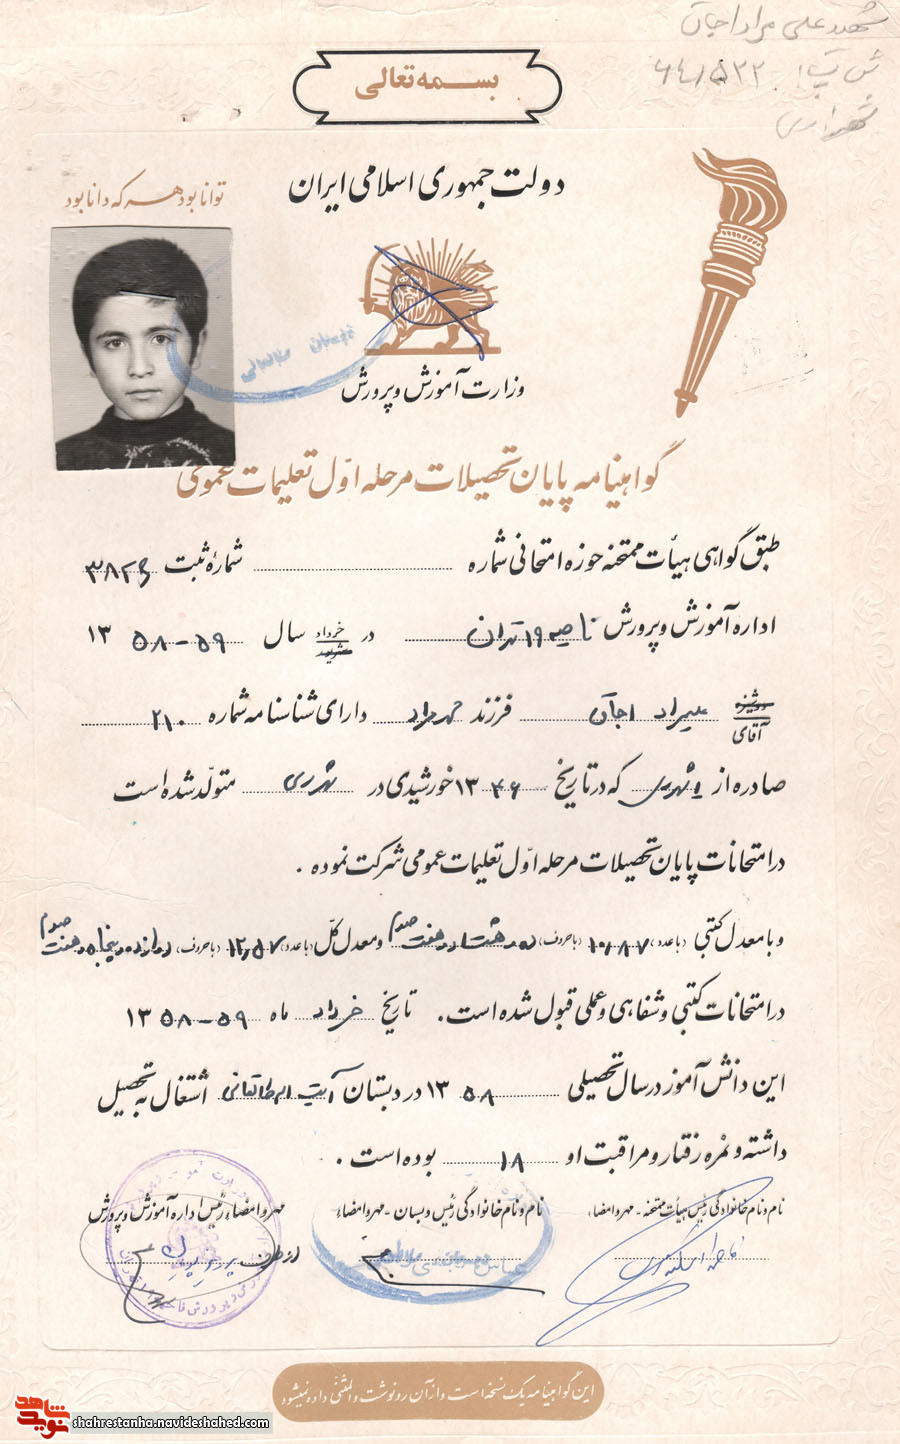 شهید علی مراد اجان
بسمه تعالی
دولت جمهوری اسلامی ایران
توانا بود هر که دانا بود
وزارت آموزش و پرورش
گواهینامه پایان تحصیلات مرحله اوّل تعلیمات عمومی
طبق گواهی هیأت ممتحنه حوزه امتحانی شماره شمارهٔ ثبت
اداره آموزش و پرورش ناحیه ۱۹ تهران در خرداد سال ۵۹-۵۸ ۱۳
دوشیزه
آقای علیمراد اجان فرزند دارای شناسنامه شماره ۲۱۰
صادره از که در تاریخ ۴۶ ۱۳ خورشیدی در شهرری متولّد شده است
در امتحانات پایان تحصیلات مرحله اوّل تعلیمات عمومی شرکت نموده .
و با معدل کتبی (با عدد) ۱۰/۸۷ (با حروف) ده و هشتاد و هفت صدم و معدل کلّ (با عدد) ۱۲/۵۷ (با حروف) دوازده و پنجاه و هفت صدم
در امتحانات کتبی و شفاهی و عملی قبول شده است. تاریخ خرداد ماه ۵۹-۵۸ ۱۳
این دانش آموز در سال تحصیلی ۵۸ ۱۳ در دبستان آیت اله طالقانی اشتغال به تحصیل
داشته و نمره رفتار و مراقبت او ۱۸ بوده است .
نام و نام خانوادگی رئیس هیأت ممتحنه - مهر و امضاء نام و نام خانوادگی رئیس دبستان - مهر و امضاء مهر و امضاء رئیس اداره آموزش و پرورش
از طرف
این گواهینامه یک نسخه است و از آن رونوشت و المثنی داده نمیشود
نوید شاهد
shahrestanha.navideshahed.com